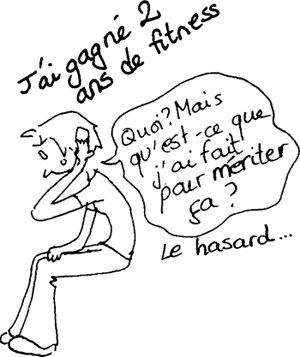 J'ai gagné 2
ans de fitness
Quoi? Mais
qu'est-ce que
j'ai fait
pour mériter
ça?
Le hasard...